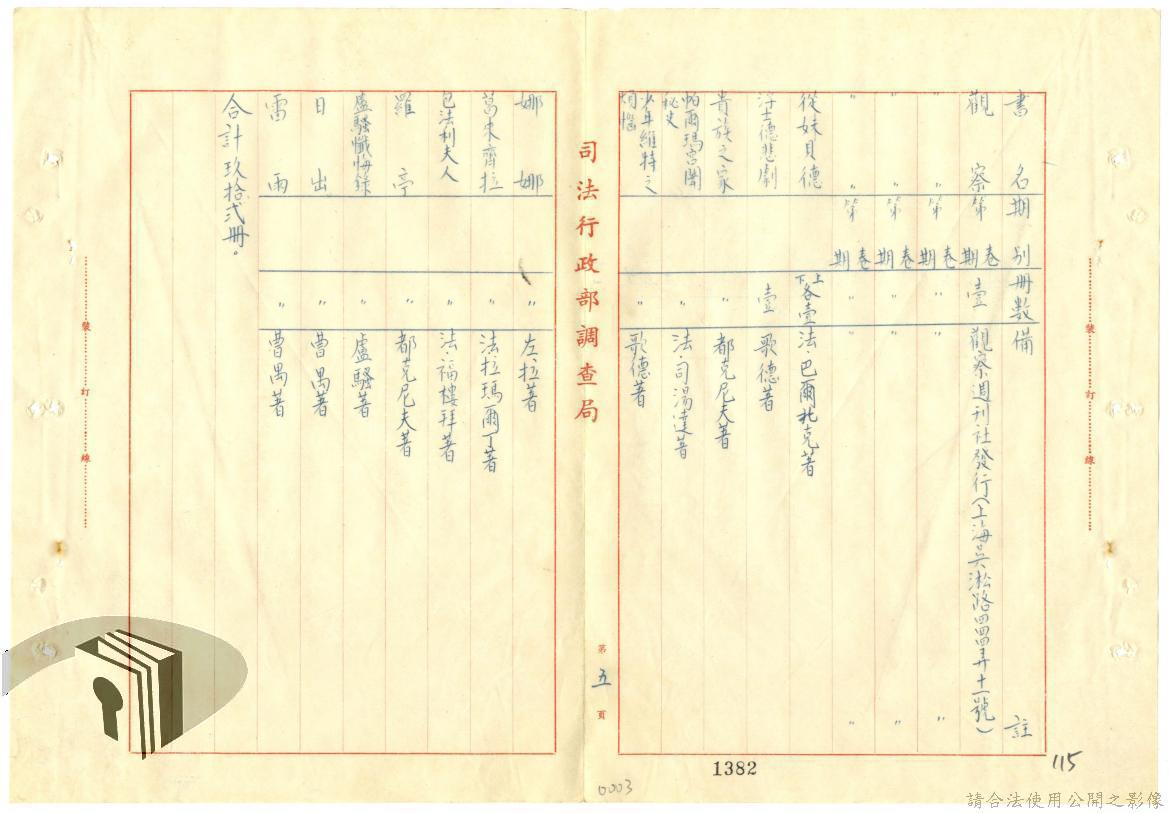 書名 期別 冊數 備註
觀察 第卷期 壹 觀察週刊社發行(上海吳淞路四四弄十一號)
〃 〃 第卷期 〃 〃 〃
〃 〃 第卷期 〃 〃 〃
〃 〃 第卷期 〃 〃 〃
從妹貝德 上下各壹 法·巴爾扎克著
浮士德悲劇 壹 歌德著
貴族之家 〃 都克尼夫著
帕爾瑪宮闈秘史 〃 法·司湯達著
少年維特之煩惱 〃 歌德著
司法行政部調查局
第五頁
娜娜 〃 左拉著
葛萊齊拉 〃 法拉瑪爾丁著
包法利夫人 〃 法·福樓拜著
羅亭 〃 都克尼夫著
盧騷懺悔錄 〃 盧騷著
日出 〃 曹禺著
雷雨 〃 曹禺著
合計玖拾弍冊。
裝訂線
裝訂線
1382
0003
115
請合法使用公開之影像